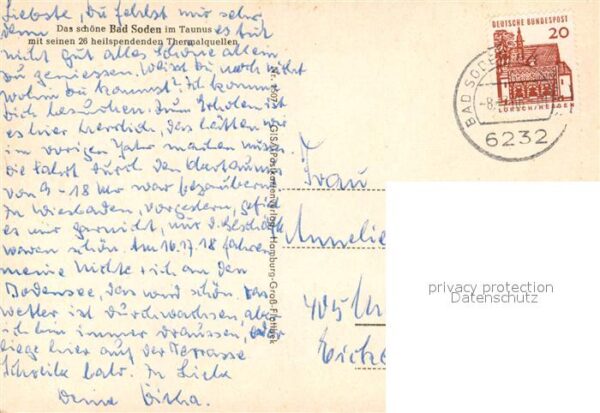 Liebste, Du fehlst mir sehr,
Das schöne Bad Soden im Taunus
mit seinen 26 heilspendenden Thermalquellen
denn es tut
nicht gut alles Schöne allein
zu geniessen. Weißt Du noch nicht
wohin Du kommst? Ich komme
Dich besuchen. Zum Erholen ist
es hier herrlich, das hätten wir
im vorigen Jahr machen müssen.
Die Fahrt durch den
von 9-18 Uhr war bezaubernd.
In Wiesbaden, vorgestern, gefiel
es mir garnicht, nur d. Geschäfte
waren schön. Am 16. 17. 18 fahren
meine Nichte + ich an den
Bodensee, das wird schön. Das
Wetter ist durchwachsen aber
ich bin immer draussen, oder
liege hier auf der Terrasse
Schreibe bald. In Liebe
Deine
GISA Postkartenverlag · Hamburg-Groß-Flottbek
DEUTSCHE BUNDESPOST
20
LORSCH/HESSEN
BAD SODEN
6232
Frau
Annelie
405
privacy protection
Datenschutz